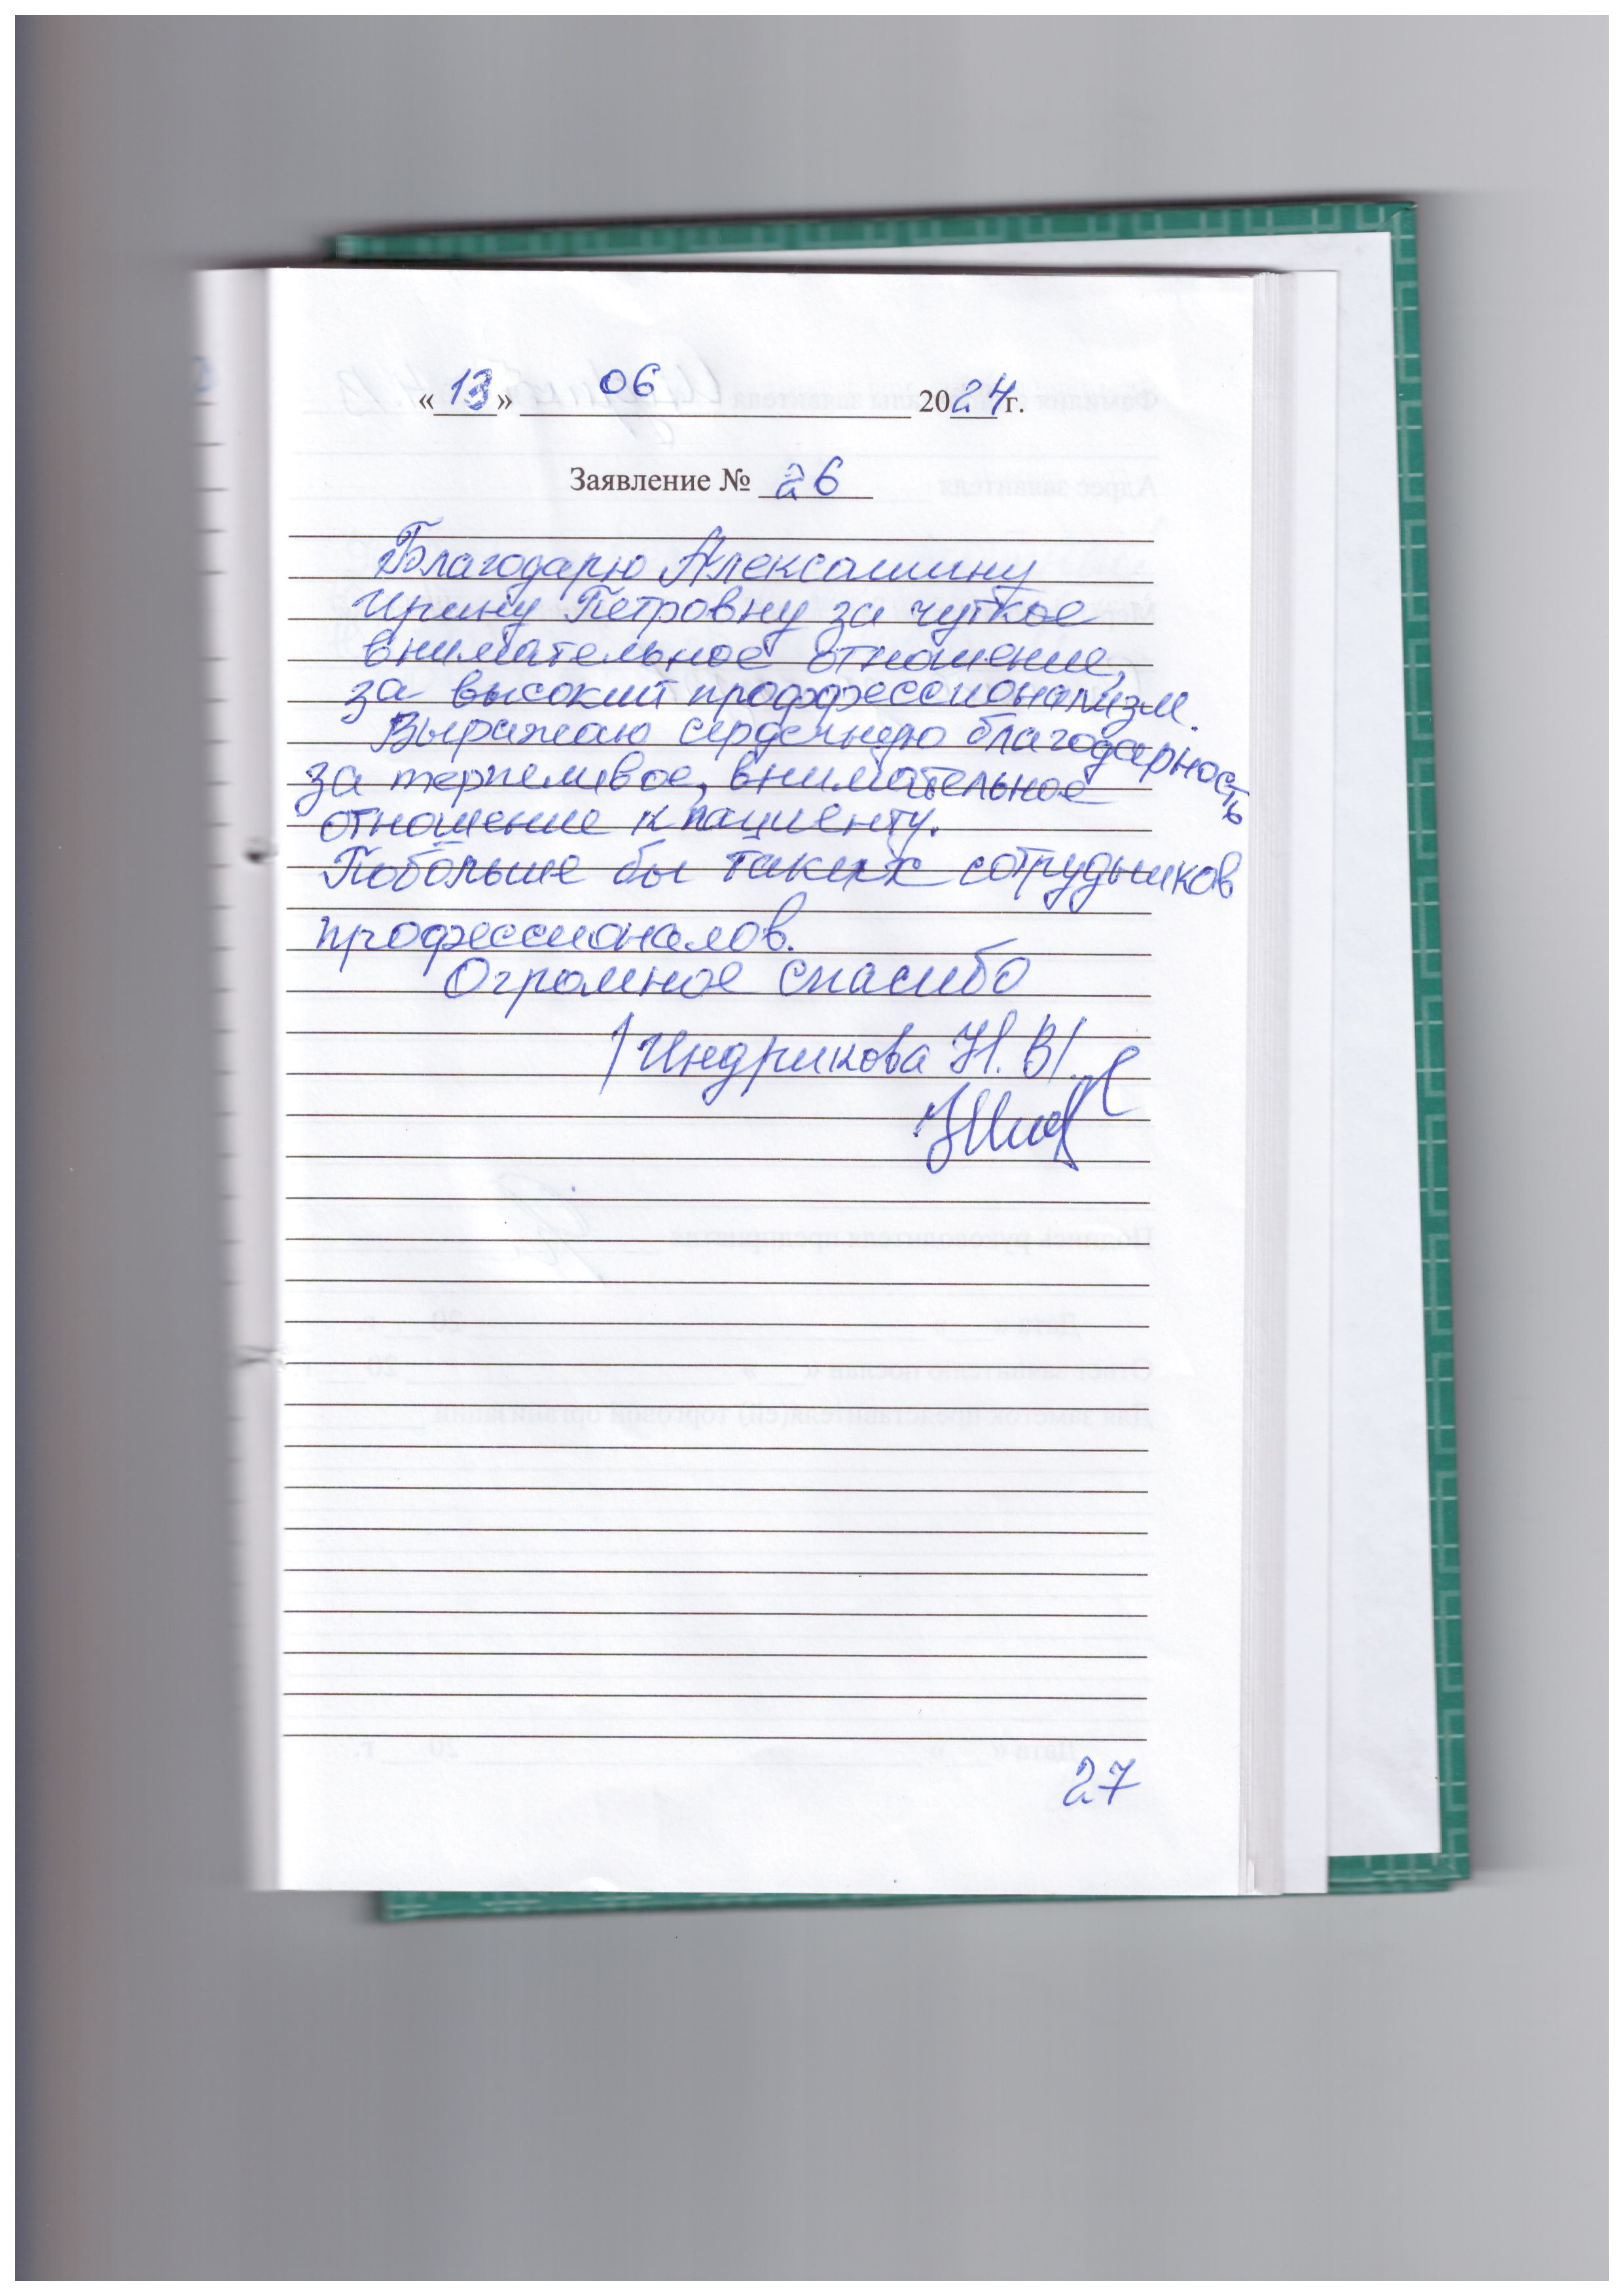 «13» 06 2024 г.
Заявление № 26
Благодарю Алексашину
Ирину Петровну за чуткое
внимательное отношение,
за высокий проффессионализм.
Выражаю сердечную благодарность
за терпеливое, внимательное
отношение к пациенту.
Побольше бы таких сотрудников
профессионалов.
Огромное спасибо
/Индрикова Н. В/.
27